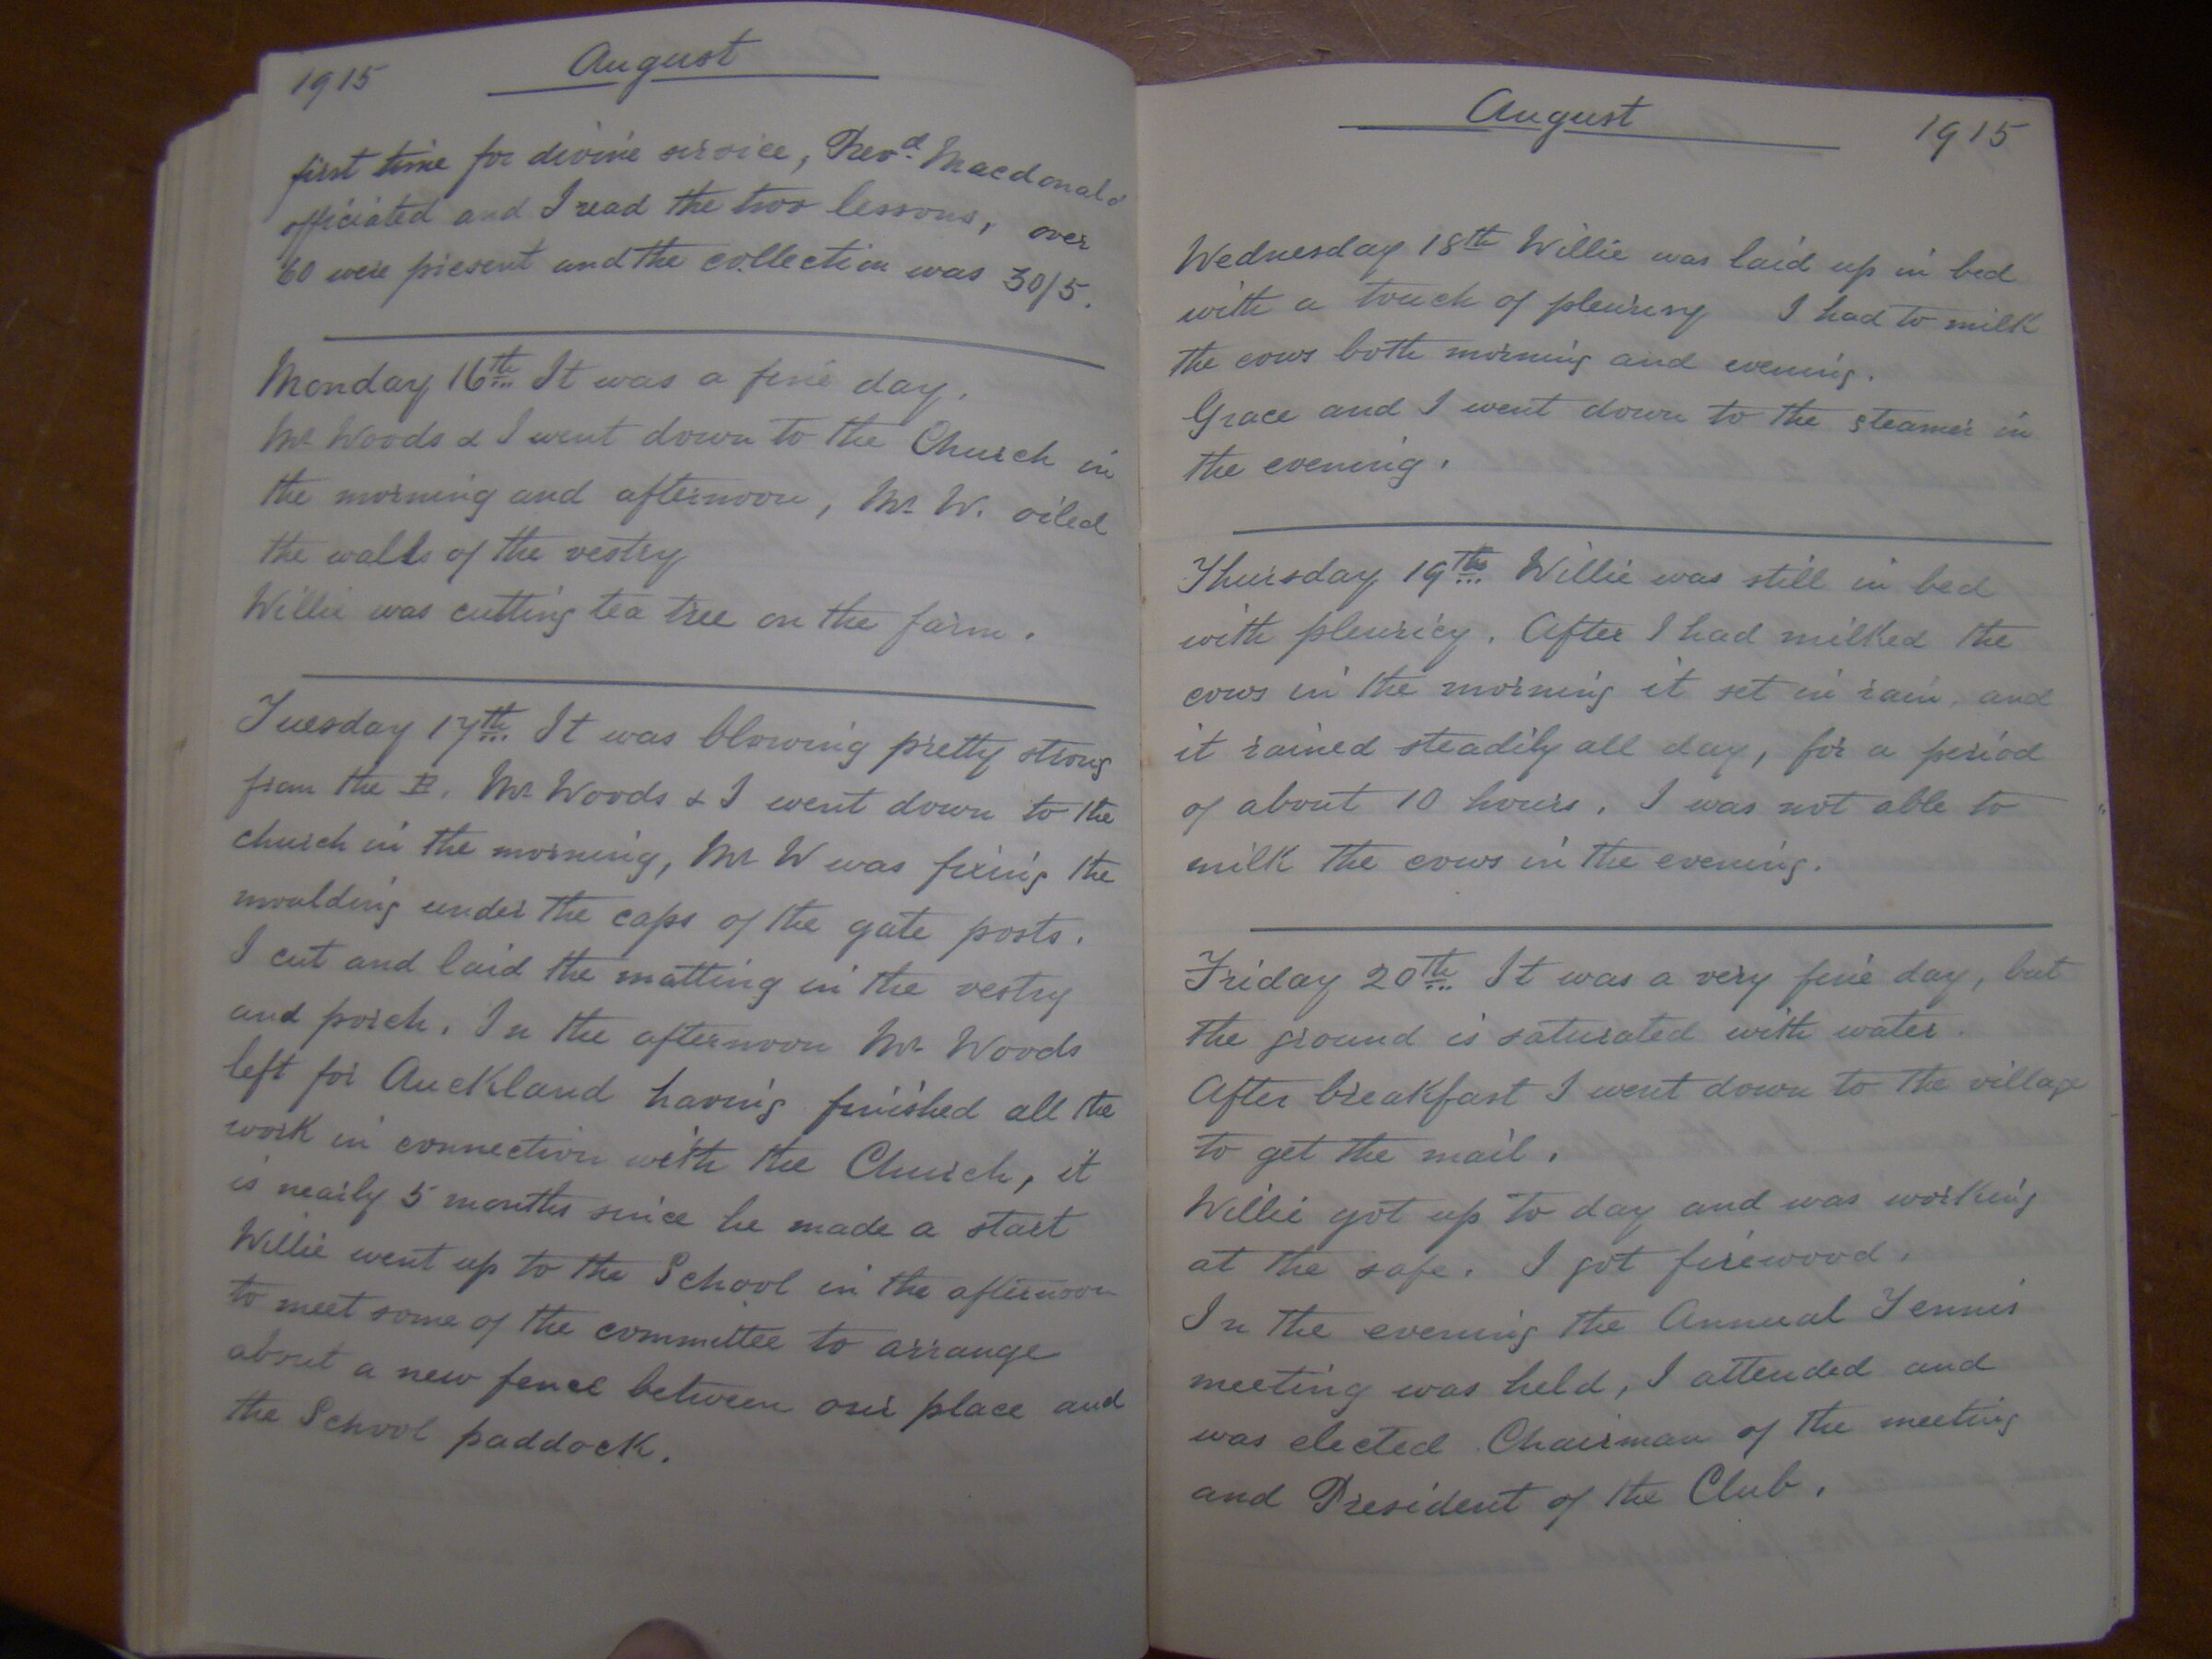 1915 August
first time for divine service, Revd. Macdonald
officiated and I read the two lessons, over
60 were present and the collection was 30/5.
Monday 16th It was a fine day.
Mr Woods & I went down to the Church in
the morning and afternoon, Mr. W. oiled
the walls of the vestry
Willie was cutting tea tree on the farm.
Tuesday 17th It was blowing pretty strong
from the E. Mr Woods & I went down to the
church in the morning, Mr W was fixing the
moulding under the caps of the gate posts.
I cut and laid the matting in the vestry
and porch. In the afternoon Mr. Woods
left for Auckland having finished all the
work in connection with the Church, it
is nearly 5 months since he made a start
Willie went up to the School in the afternoon
to meet some of the committee to arrange
about a new fence between our place and
the School paddock.
August 1915
Wednesday 18th Willie was laid up in bed
with a touch of pleurisy I had to milk
the cows both morning and evening.
Grace and I went down to the steamer in
the evening.
Thursday 19th Willie was still in bed
with pleuricy. After I had milked the
cows in the morning it set in rain, and
it rained steadily all day, for a period
of about 10 hours. I was not able to
milk the cows in the evening.
Friday 20th It was a very fine day, but
the ground is saturated with water.
After breakfast I went down to the village
to get the mail.
Willie got up to day and was working
at the safe. I got firewood.
In the evening the Annual Tennis
meeting was held, I attended and
was elected Chairman of the meeting
and President of the Club.